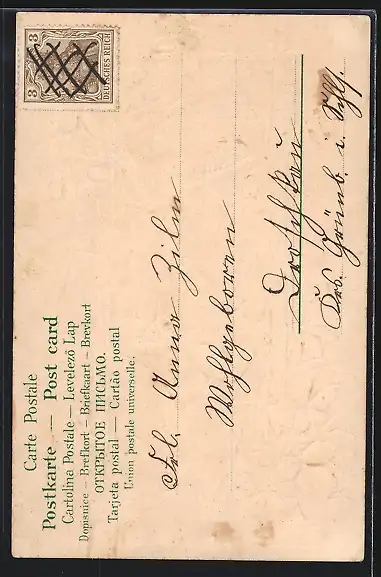 Carte Postale
Postkarte — Post card
Cartolina Postale — Levelező Lap
Dopisnice — Brefkort — Briefkaart — Brevkort
ОТКРЫТОЕ ПИСЬМО.
Tarjeta postal — Cartão postal
Union postale universelle.
3 3
DEUTSCHES REICH
Frl. Anna Zilm
Wohlgeboren
Droschkau
Krs. Grünb. i. Schl.